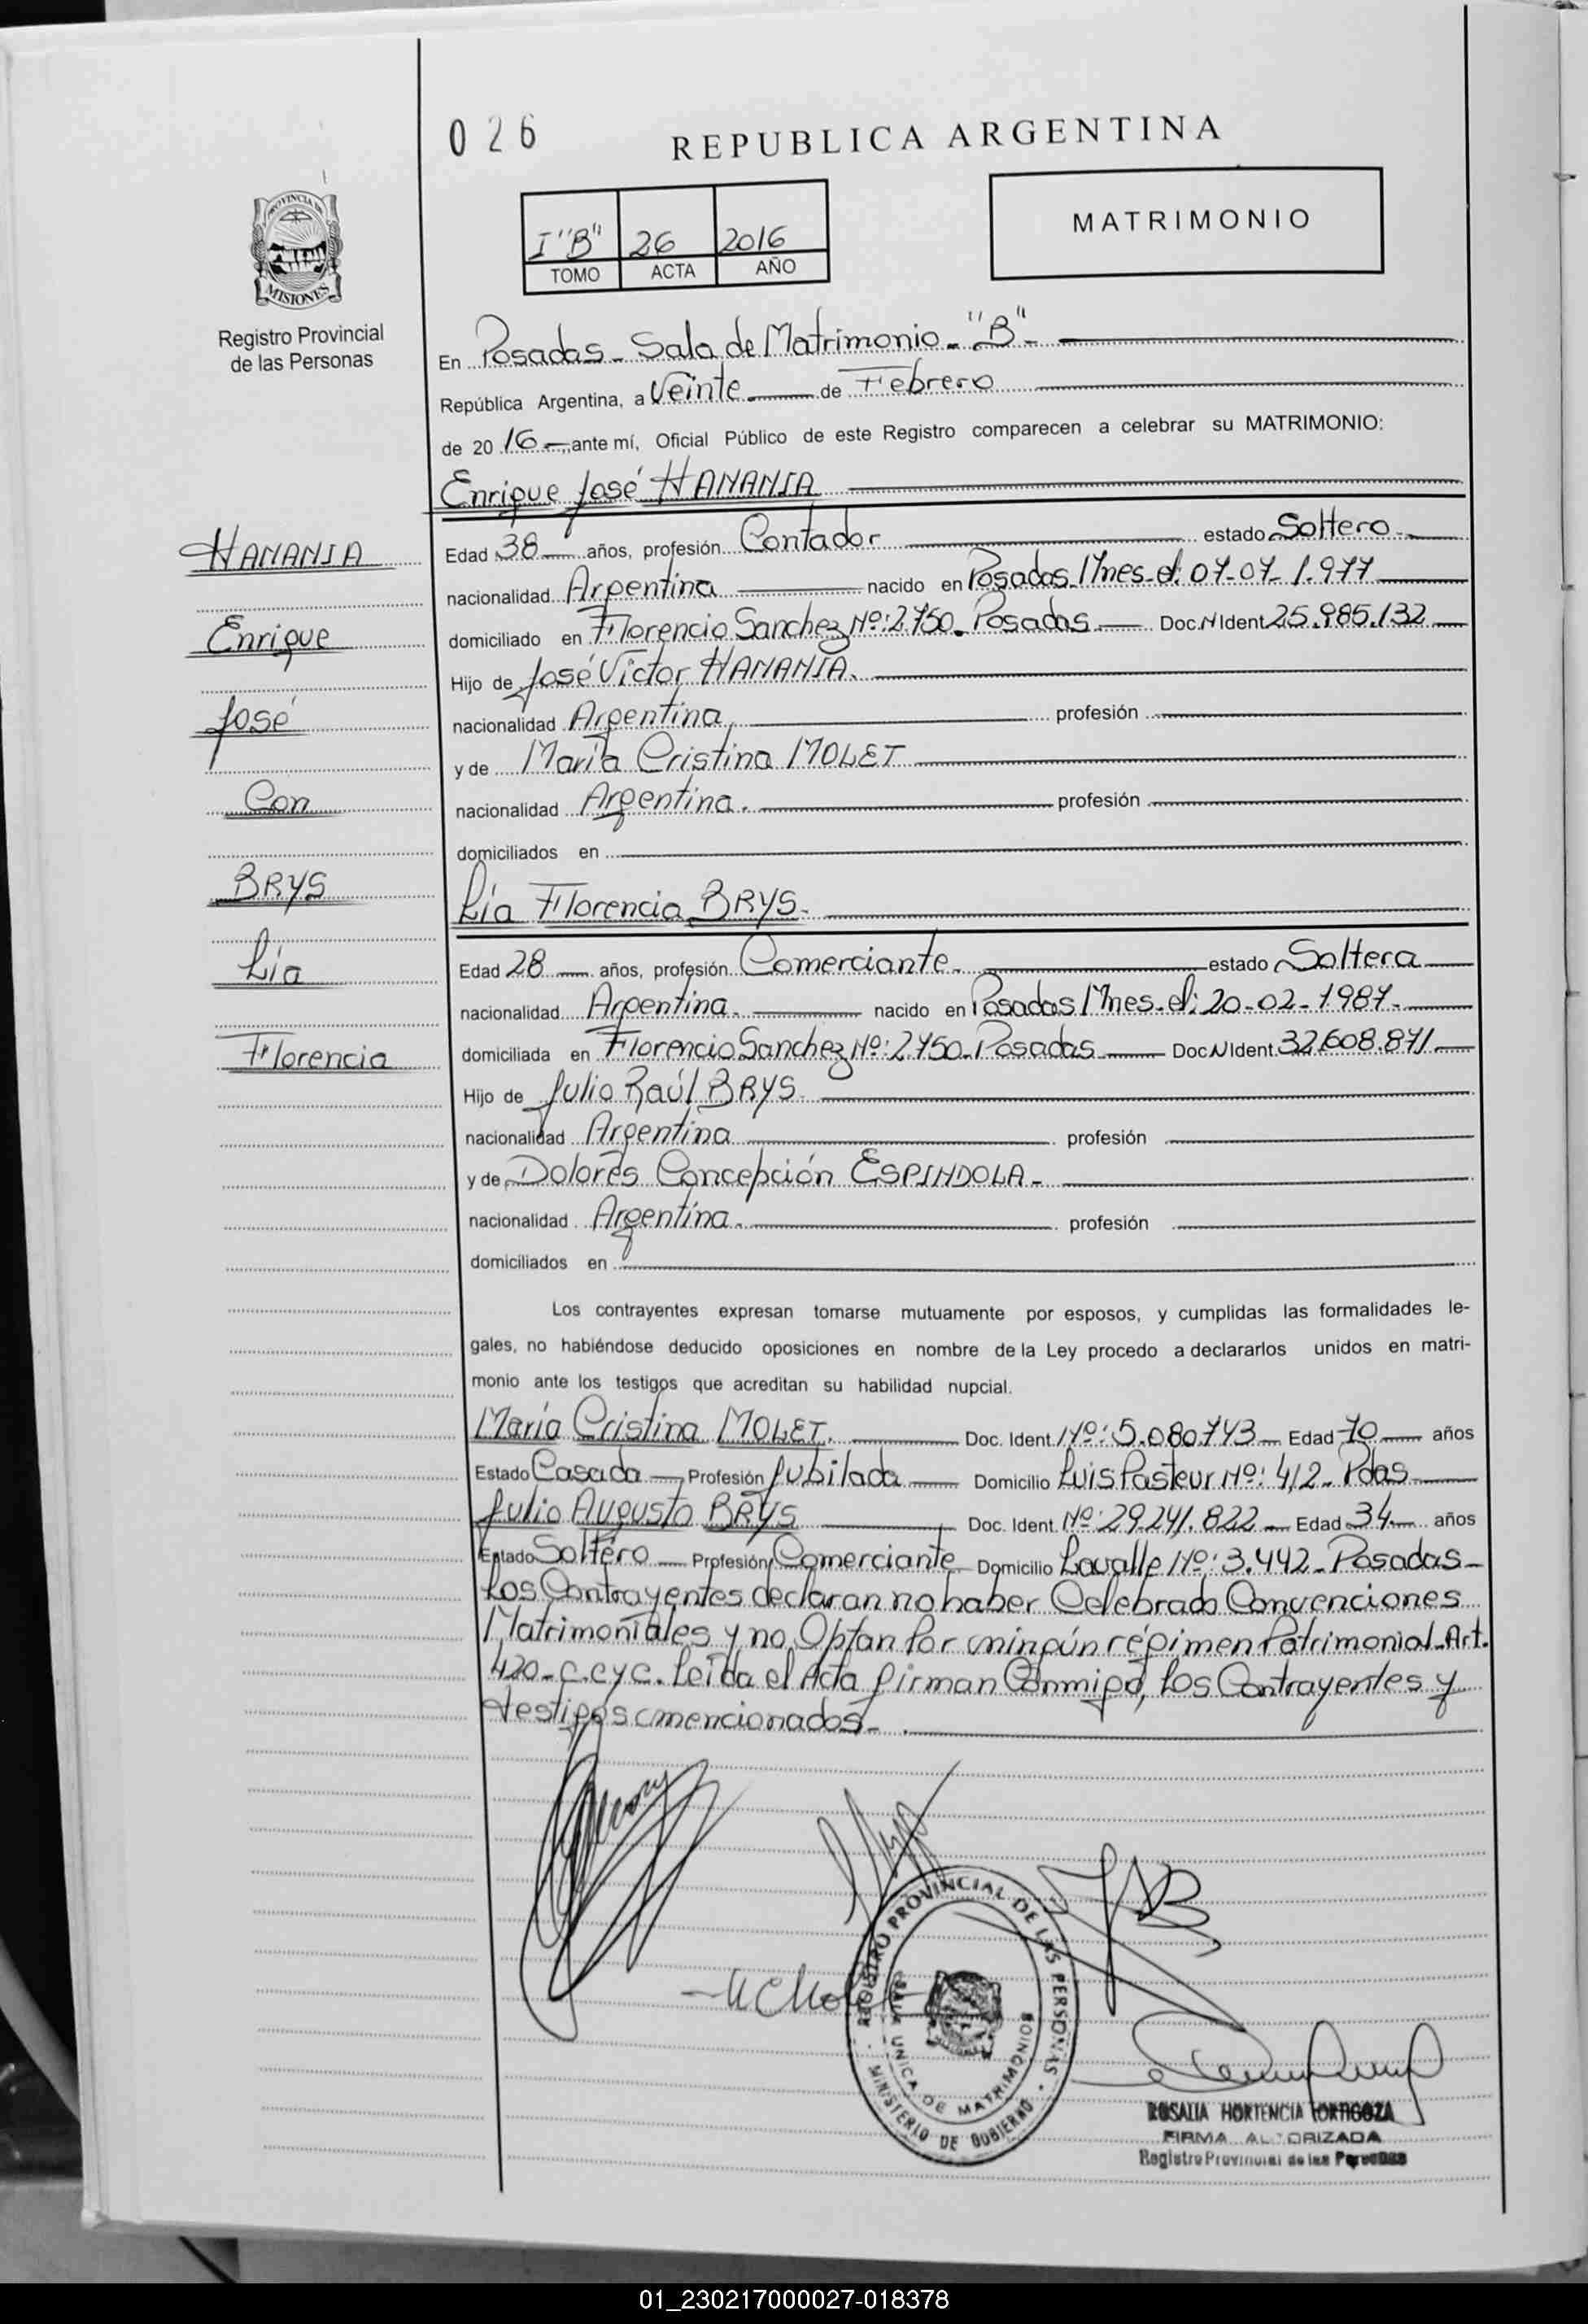 026
REPUBLICA ARGENTINA
I"B" 26 2016
TOMO ACTA AÑO
MATRIMONIO
PROVINCIA DE
MISIONES
Registro Provincial
de las Personas
En Posadas - Sala de Matrimonio - "B" -
República Argentina, a Veinte de Febrero
de 20 16 ante mí, Oficial Público de este Registro comparecen a celebrar su MATRIMONIO:
Enrique José HANANIA
HANANIA
Enrique
José
Con
BRYS
Lía
Florencia
Edad 38 años, profesión Contador estado Soltero.
nacionalidad Argentina nacido en Posadas Mnes. el: 07-07-1.977
domiciliado en Florencio Sanchez Nº: 2.750. Posadas Doc.N Ident 25.985.132
Hijo de José Víctor HANANIA.
nacionalidad Argentina profesión
y de María Cristina MOLET
nacionalidad Argentina. profesión
domiciliados en
Lía Florencia BRYS.
Edad 28 años, profesión Comerciante. estado Soltera
nacionalidad Argentina. nacido en Posadas Mnes. el: 20-02-1.987.
domiciliada en Florencio Sanchez Nº: 2.750. Posadas Doc.N Ident. 32.608.871
Hijo de Julio Raúl BRYS.
nacionalidad Argentina profesión
y de Dolores Concepción ESPINDOLA.
nacionalidad Argentina. profesión
domiciliados en
Los contrayentes expresan tomarse mutuamente por esposos, y cumplidas las formalidades le-
gales, no habiéndose deducido oposiciones en nombre de la Ley procedo a declararlos unidos en matri-
monio ante los testigos que acreditan su habilidad nupcial.
María Cristina MOLET. Doc. Ident. Nº: 5.080.743 Edad 70 años
Estado Casada Profesión Jubilada Domicilio Luis Pasteur Nº: 412. Pdas
Julio Augusto BRYS Doc. Ident. Nº: 29.241.822 Edad 34 años
Estado Soltero Profesión Comerciante Domicilio Lavalle Nº: 3.442. Posadas
Los Contrayentes declaran no haber Celebrado Convenciones
Matrimoniales y no Optan Por ningún régimen Patrimonial. Art.
420- C.CyC. Leída el Acta firman Conmigo, los Contrayentes y
testigos mencionados.
REGISTRO PROVINCIAL DE LAS PERSONAS
UNICA DE MATRIMONIOS
MINISTERIO DE GOBIERNO
ROSALIA HORTENCIA TORTIGOZA
FIRMA AUTORIZADA
Registro Provincial de las Personas
01_230217000027-018378